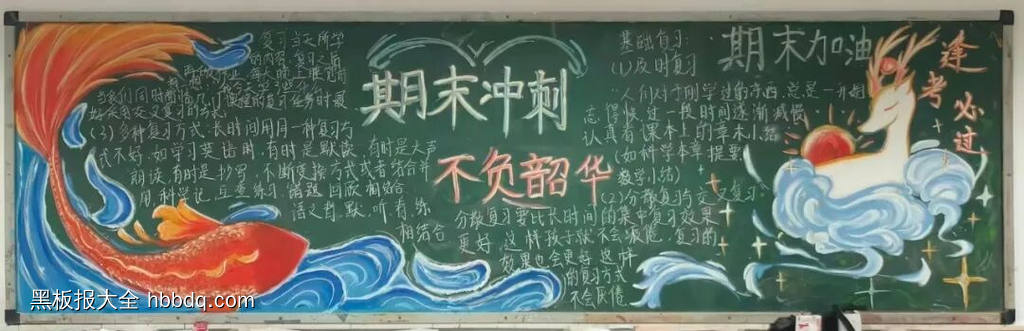 期末冲刺
不负韶华
期末加油
逢考必过
复习当天所学
的内容，复习之后
再做作业，每天晚上睡觉前
(3)多种复习方式：长时间用同一种复习
式不好，如学习英语时，有时是默读，有时是大声
朗读，有时是抄写，不断变换方式或者结合并
用，科学记
语文背，默，听，看，练
相结合
基础复习：
(1)及时复习
人们对于刚学过的东西，总是一开始
忘得快，过一段时间逐渐减慢
认真看课本上的章末小结
(如科学本章提要
数学小结)
(2)分散复习与交叉复习
分散复习要比长时间的集中复习效果
更好，这样孩子就不会疲倦，复习的
效果也会更好，这样
的复习方式
不会厌倦
黑板报大全 hbbdq.com